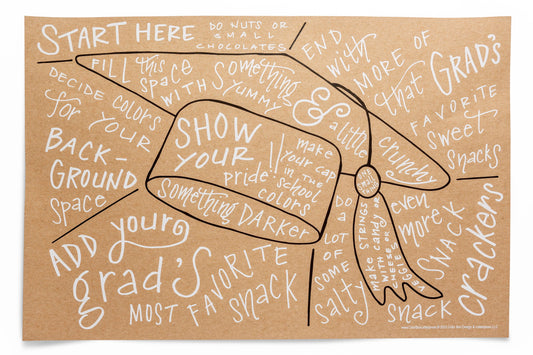 START HERE
DO NUTS OR
SMALL
CHOCOLATES
END
with
MORE OF
that GRAD'S
FAVORITE
sweet
Snacks
DECIDE COLORS
for YOUR
BACK-
GROUND
space
FILL this
SPACE
WITH Something
YUMMY
& a little
crunchy
SHOW
YOUR
pride!!
make
your cap
in THE
school
colors
something DARKER
ADD your
grad's
MOST FAVORITE
snack
DO
A
LOT
OF
SOME
salty
make STRINGS
WITH candy or
CHEESE or
VEGGIES
even
more
SNACK
snack
crackers